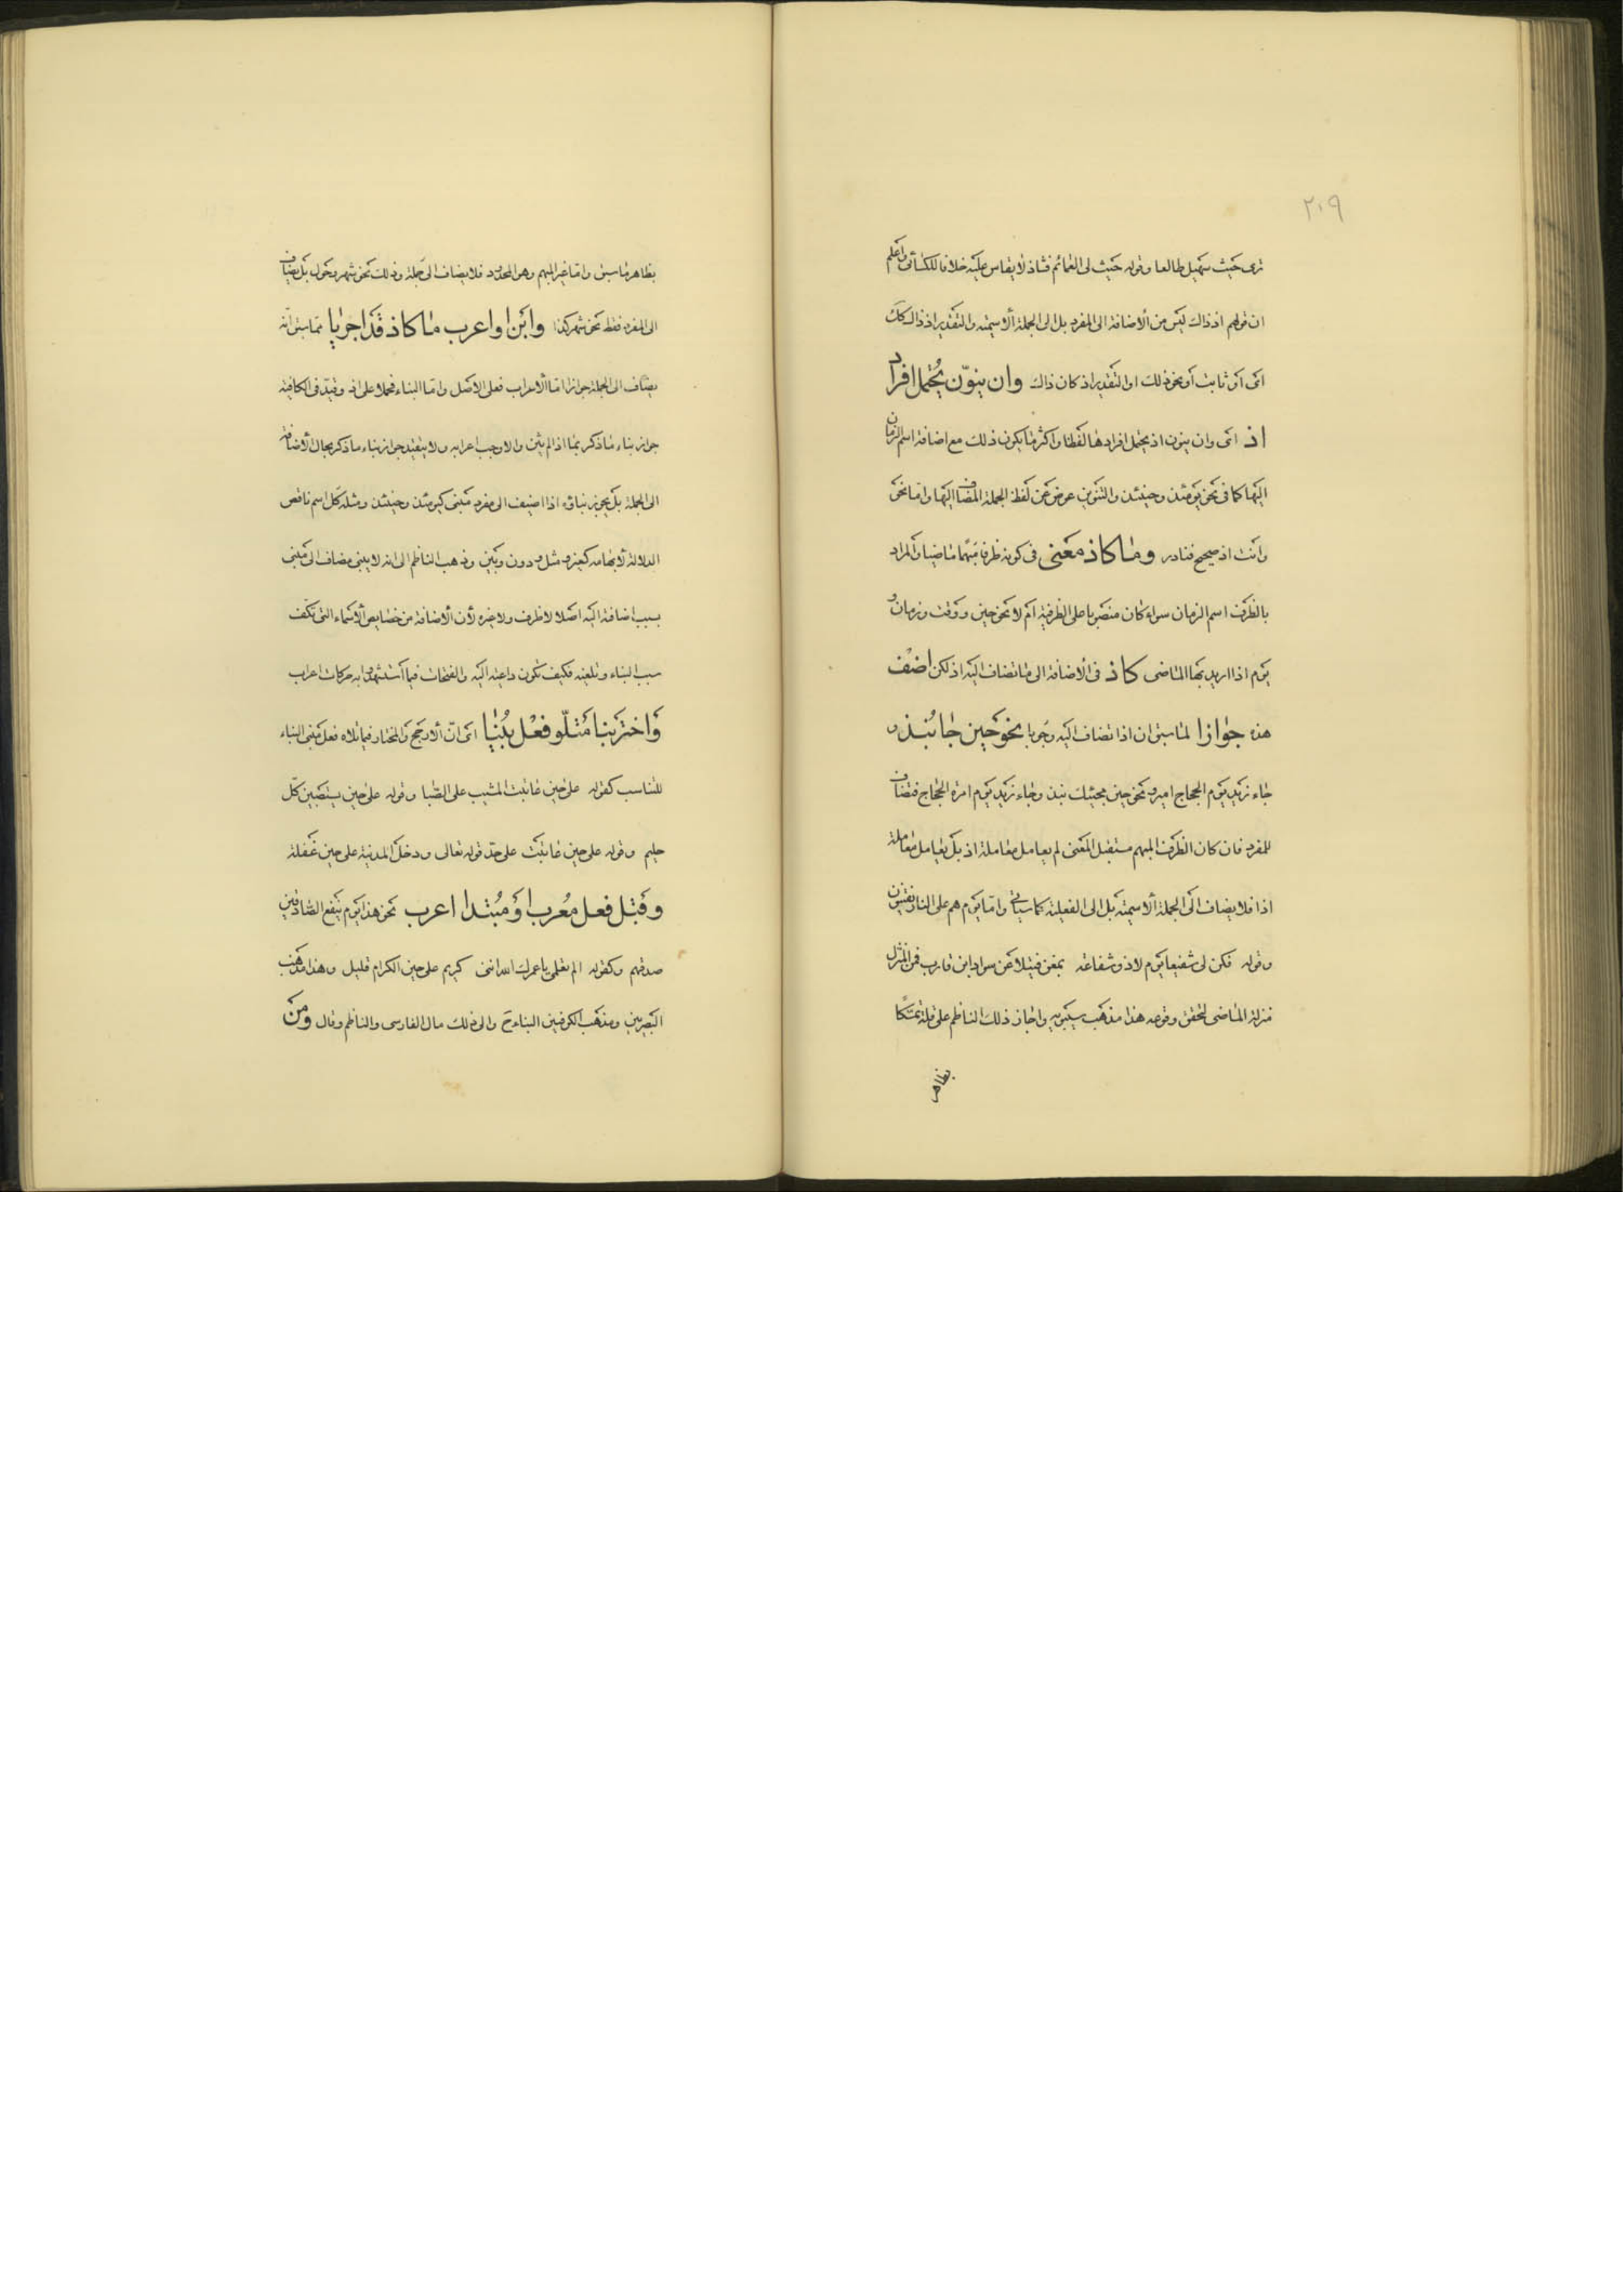 ٢٠٩
ترى حيث سهيل طالعا وقوله حيث لى العمائم فشاذ لا يقاس عليه خلافا للكسائى واعلم
ان قولهم اذ ذاك ليس من الاضافة الى المفرد بل الى الجملة الاسمية والتقدير اذ ذاك كك
اى او ثابت او نحو ذلك او التقدير اذ كان ذاك وان ينوّن يُحتمل افراد
اذ اى وان ينون اذ يحتمل افرادها لفظا واكثر ما يكون ذلك مع اضافة اسم الزمان
اليها كما فى نحو يومئذ وحينئذ والتنوين عوض عن لفظ الجملة المضاف اليها واما نحو
وانت اذ صحيح فنادر وما كاذ معنى فى كونه ظرفا مبهما ماضيا والمراد
بالظرف اسم الزمان سواء كان منصوبا على الظرفية ام لا نحو حين ووقت وزمان و
يوم اذا اريد بها الماضى كاذ فى الاضافة الى ما تضاف اليه اذ لكن اضف
هذه جوازا لما سبق ان اذ تضاف اليه وجوبا نحو حين جا نُبذ و
جاء زيد يوم الحجاج امير ونحو حين مجيئك نبذ وجاء زيد يوم امرة الحجاج فتضاف
للمفرد فان كان الظرف المبهم مستقبل المعنى لم يعامل معاملة اذ بل يعامل معاملة
اذا فلا يضاف الى الجملة الاسمية بل الى الفعلية كما سياتى واما يوم هم على النار يفتنون
وقوله فكن لى شفيعا يوم لا ذو شفاعة بمغن فتيلا عن سواد ابن قارب فمن نزل
منزلة الماضى لتحقق وقوعه هذا مذهب سيبويه واجاز ذلك الناظم على قلة تمسكا
بظاهر
بظاهر ما سبق واما غير المبهم وهو المحدود فلا يضاف الى جملة وذلك نحو شهر وحول بل يضاف
الى المفرد فقط نحو شهر كذا وابن او اعرب ما كاذ قد اجريا مما سبق انه
يضاف الى الجملة جوازا اما الاعراب فعلى الاصل واما البناء فحملا على اذ وقيد فى الكافية
جواز بناء ما ذكر بما اذا لم يثن والا وجب اعرابه ولا يتقيد جواز بناء ما ذكر بحال الاضافة
الى الجملة بل يجوز بناؤه اذا اضيف الى مفرد مبنى كيومئذ وحينئذ ومثله كل اسم ناقص
الدلالة لابهامه كغير ومثل ودون وبين وذهب الناظم الى انه لا يبنى مضاف الى مبنى
بسبب اضافة اليه اصلا لا ظرف ولا غيره لان الاضافة من خصايص الاسماء التى تكف
سبب البناء وتلغيه فكيف تكون داعية اليه والفتحات فيما استشهدوا به حركات اعراب
واختر بنا متلوّ فعل بُنيا اى انّ الارجح والمختار فيما تلاه فعل مبنى البناء
للتناسب كقوله على حين عاتبت المشيب على الصبا وقوله على حين يستصبين كل
حليم وقوله على حين عاتبت على حد قوله تعالى ودخل المدينة على حين غفلة
وقبل فعل معرب او مبتدا اعرب نحو هذا يوم ينفع الصادقين
صدقهم وكقوله الم تعلمى يا عمرك الله اننى كريم على حين الكرام قليل وهذا مذهب
البصريين ومذهب الكوفيين البناء ح والى ذلك مال الفارسى والناظم وقال ومن